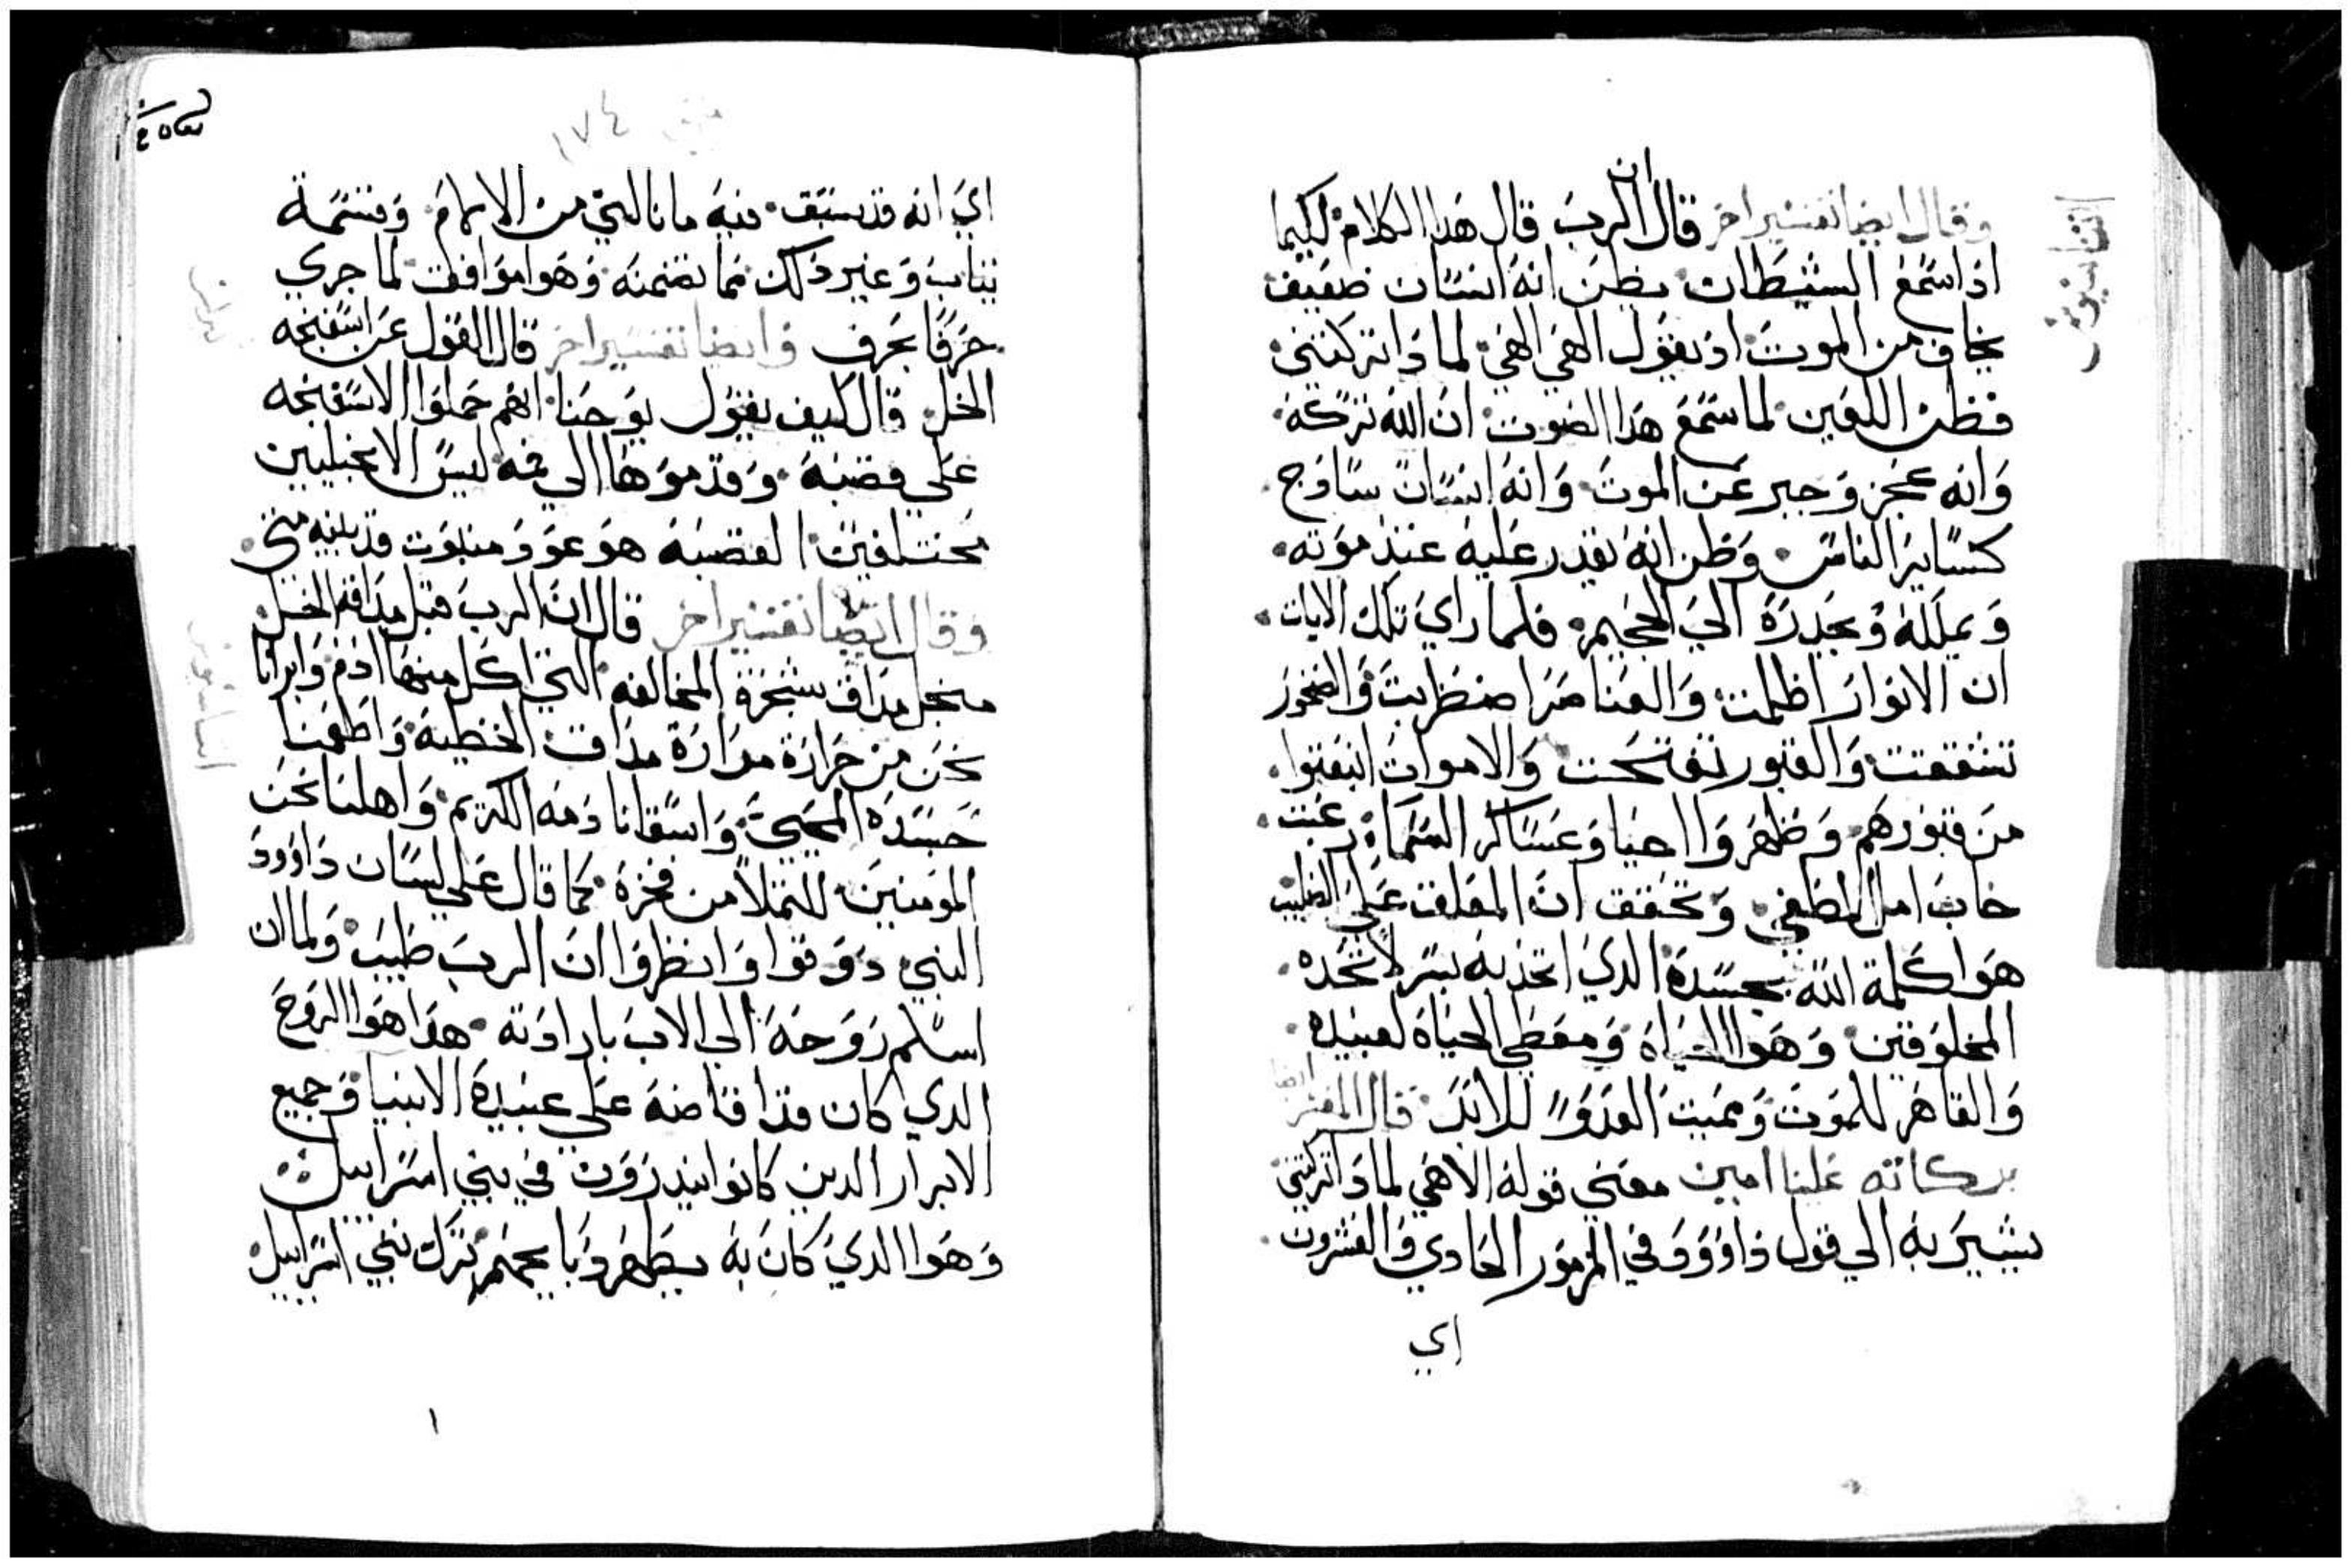 وقال ايضا تفسير اخر قال ان الرب قال هدا الكلام لكيما
ادا سمع الشيطان يظن انه انسان ضعيف
يخاف من الموت اد يقول الهي الهي لمادا تركتني
فظن اللعين لما سمع هدا الصوت ان الله تركه
وانه عجز وجبر عن الموت وانه انسان سادج
كساير الناس وظن انه يقدر عليه عند موته
ويملكه ويجدره الي الجحيم فلما راي تلك الايات
ان الانوار اظلمت والعناصر اضطربت والصخور
تشققت والقبور تفتحت والاموات انبعتوا
من قبورهم وظهروا احيا وعساكر السما رعبت
خاب امل الطغي وتحقق ان المعلق علي الصليب
هوا كلمة الله بجسده الدي اتخد به بسر لا تحده
المخلوقين وهوا الحياه ومعطي الحياة لعبيده
والقاهر للموت ومميت العدو للابد قال المفسر ايضا
بركاته علينا امين معني قوله الاهي لمادا تركتني
يشير به الي قول داوود في المزمور الحادي والعشرون
اي
اثناسيوس
١٧٤
اي انه قد سبق فيه ما نالني من الالام وقسمة
تياب وغير دلك مما تضمنه وهوا موافقت لما جري
حرفا بحرف وايضا تفسير اخر قال القول عن اسفنجه
الخل قال كيف يقول يوحنا انهم حملوا الاسفنجه
علي قصبه وقدموها الي فمه ليس الانجيليين
مختلفين القصبه هو عود
وقال ايضا تفسير اخر قال ان الرب قبل مداقة الخل
من اجل مداق شجرة المخالفه التي اكل منها ادم وابرانا
نحن من حرارة مرارة مداق الخطيه واطعمنا
جسده المحيي واسقانا دمه الكريم واهلنا نحن
المومنين للتملا من فخره كما قال علي لسان داوود
النبي دوقوا وانظروا ان الرب طيب ولما ان
اسلم روحه الي الاب بارادته هدا هوا الروح
الدي كان قد افاضه علي عبيده الانبيا وجميع
الابرار الدين كانوا ينذرون في بني اسراييل
وهوا الدي كان به يطهر وبا يجمعهم ترك بني اسراييل